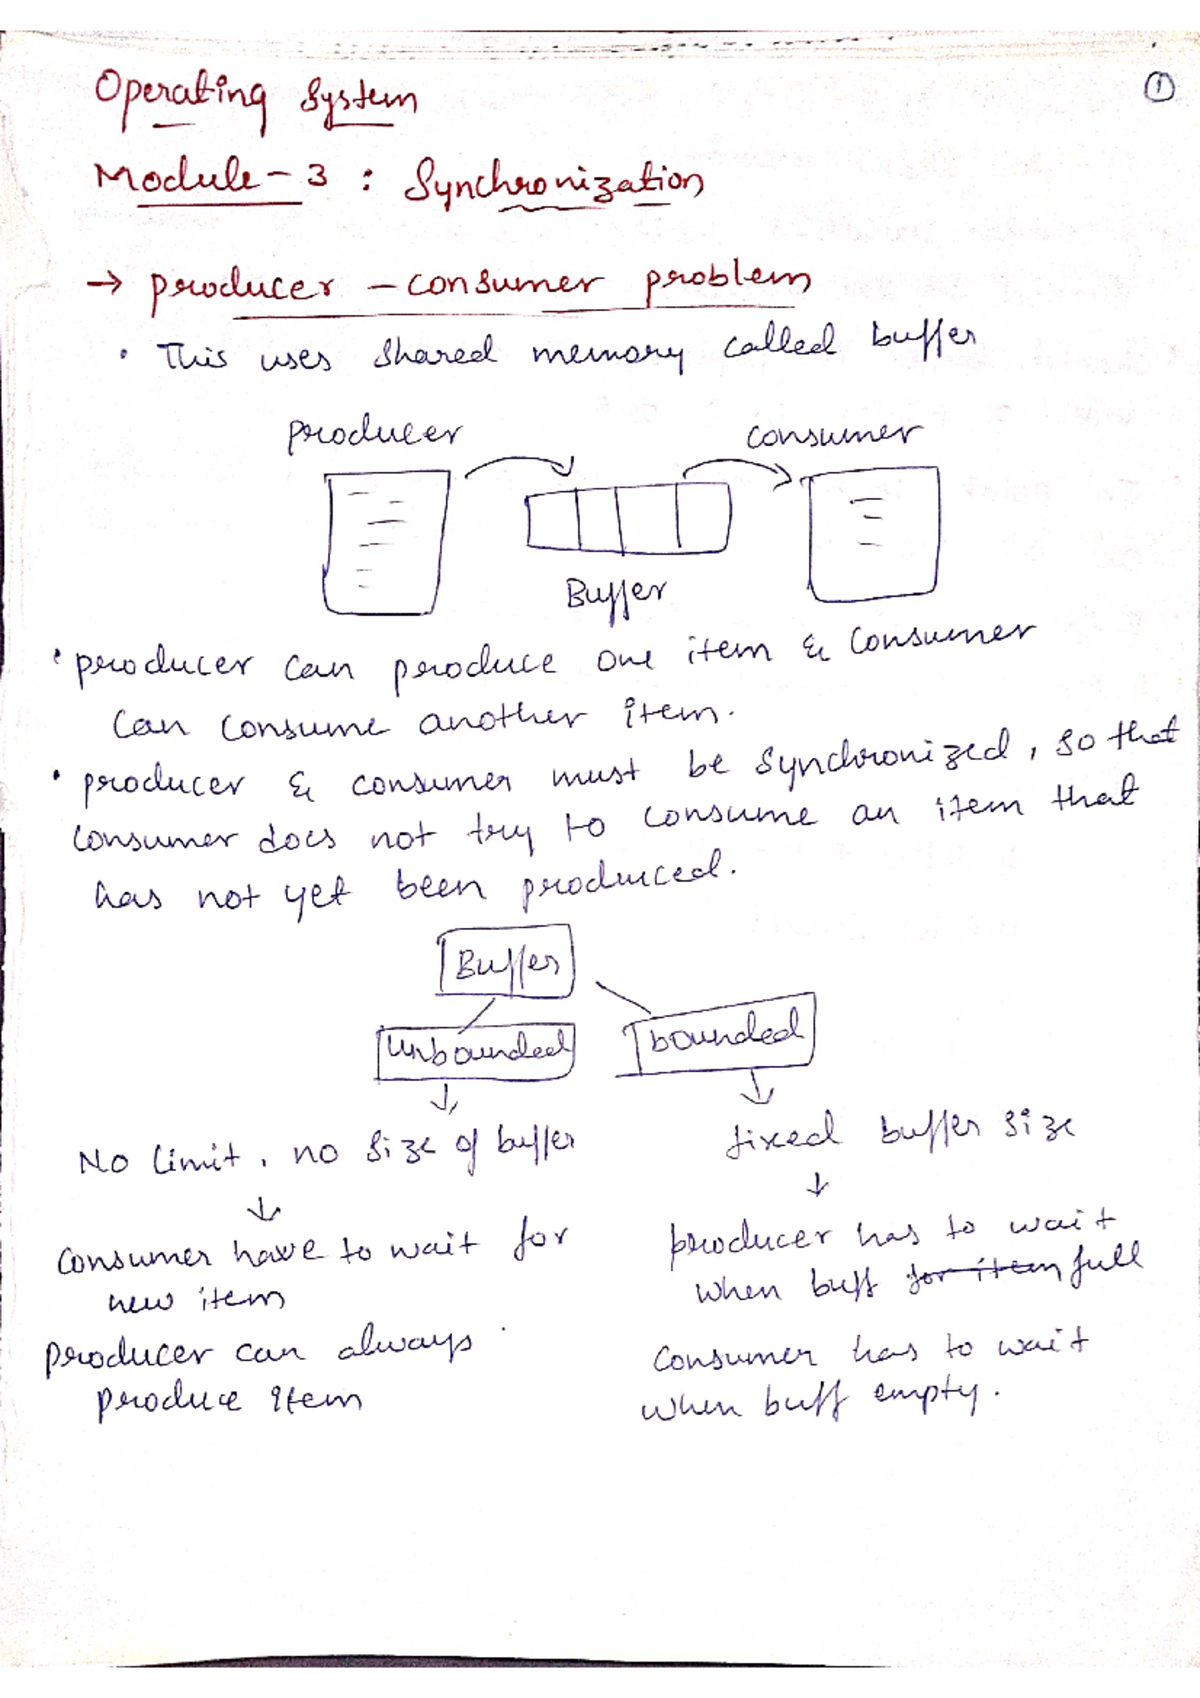 Operating System
①
Module - 3 : Synchronization
→ producer - consumer problem
• This uses shared memory called buffer
producer
consumer
Buffer
• producer can produce one item & consumer
can consume another item.
• producer & consumer must be synchronized, so that
consumer does not try to consume an item that
has not yet been produced.
Buffer
unbounded
bounded
↓
↓
No limit, no size of buffer
fixed buffer size
↓
↓
consumer have to wait for
new item
producer can always
produce item
producer has to wait
when buff for item full
consumer has to wait
when buff empty.